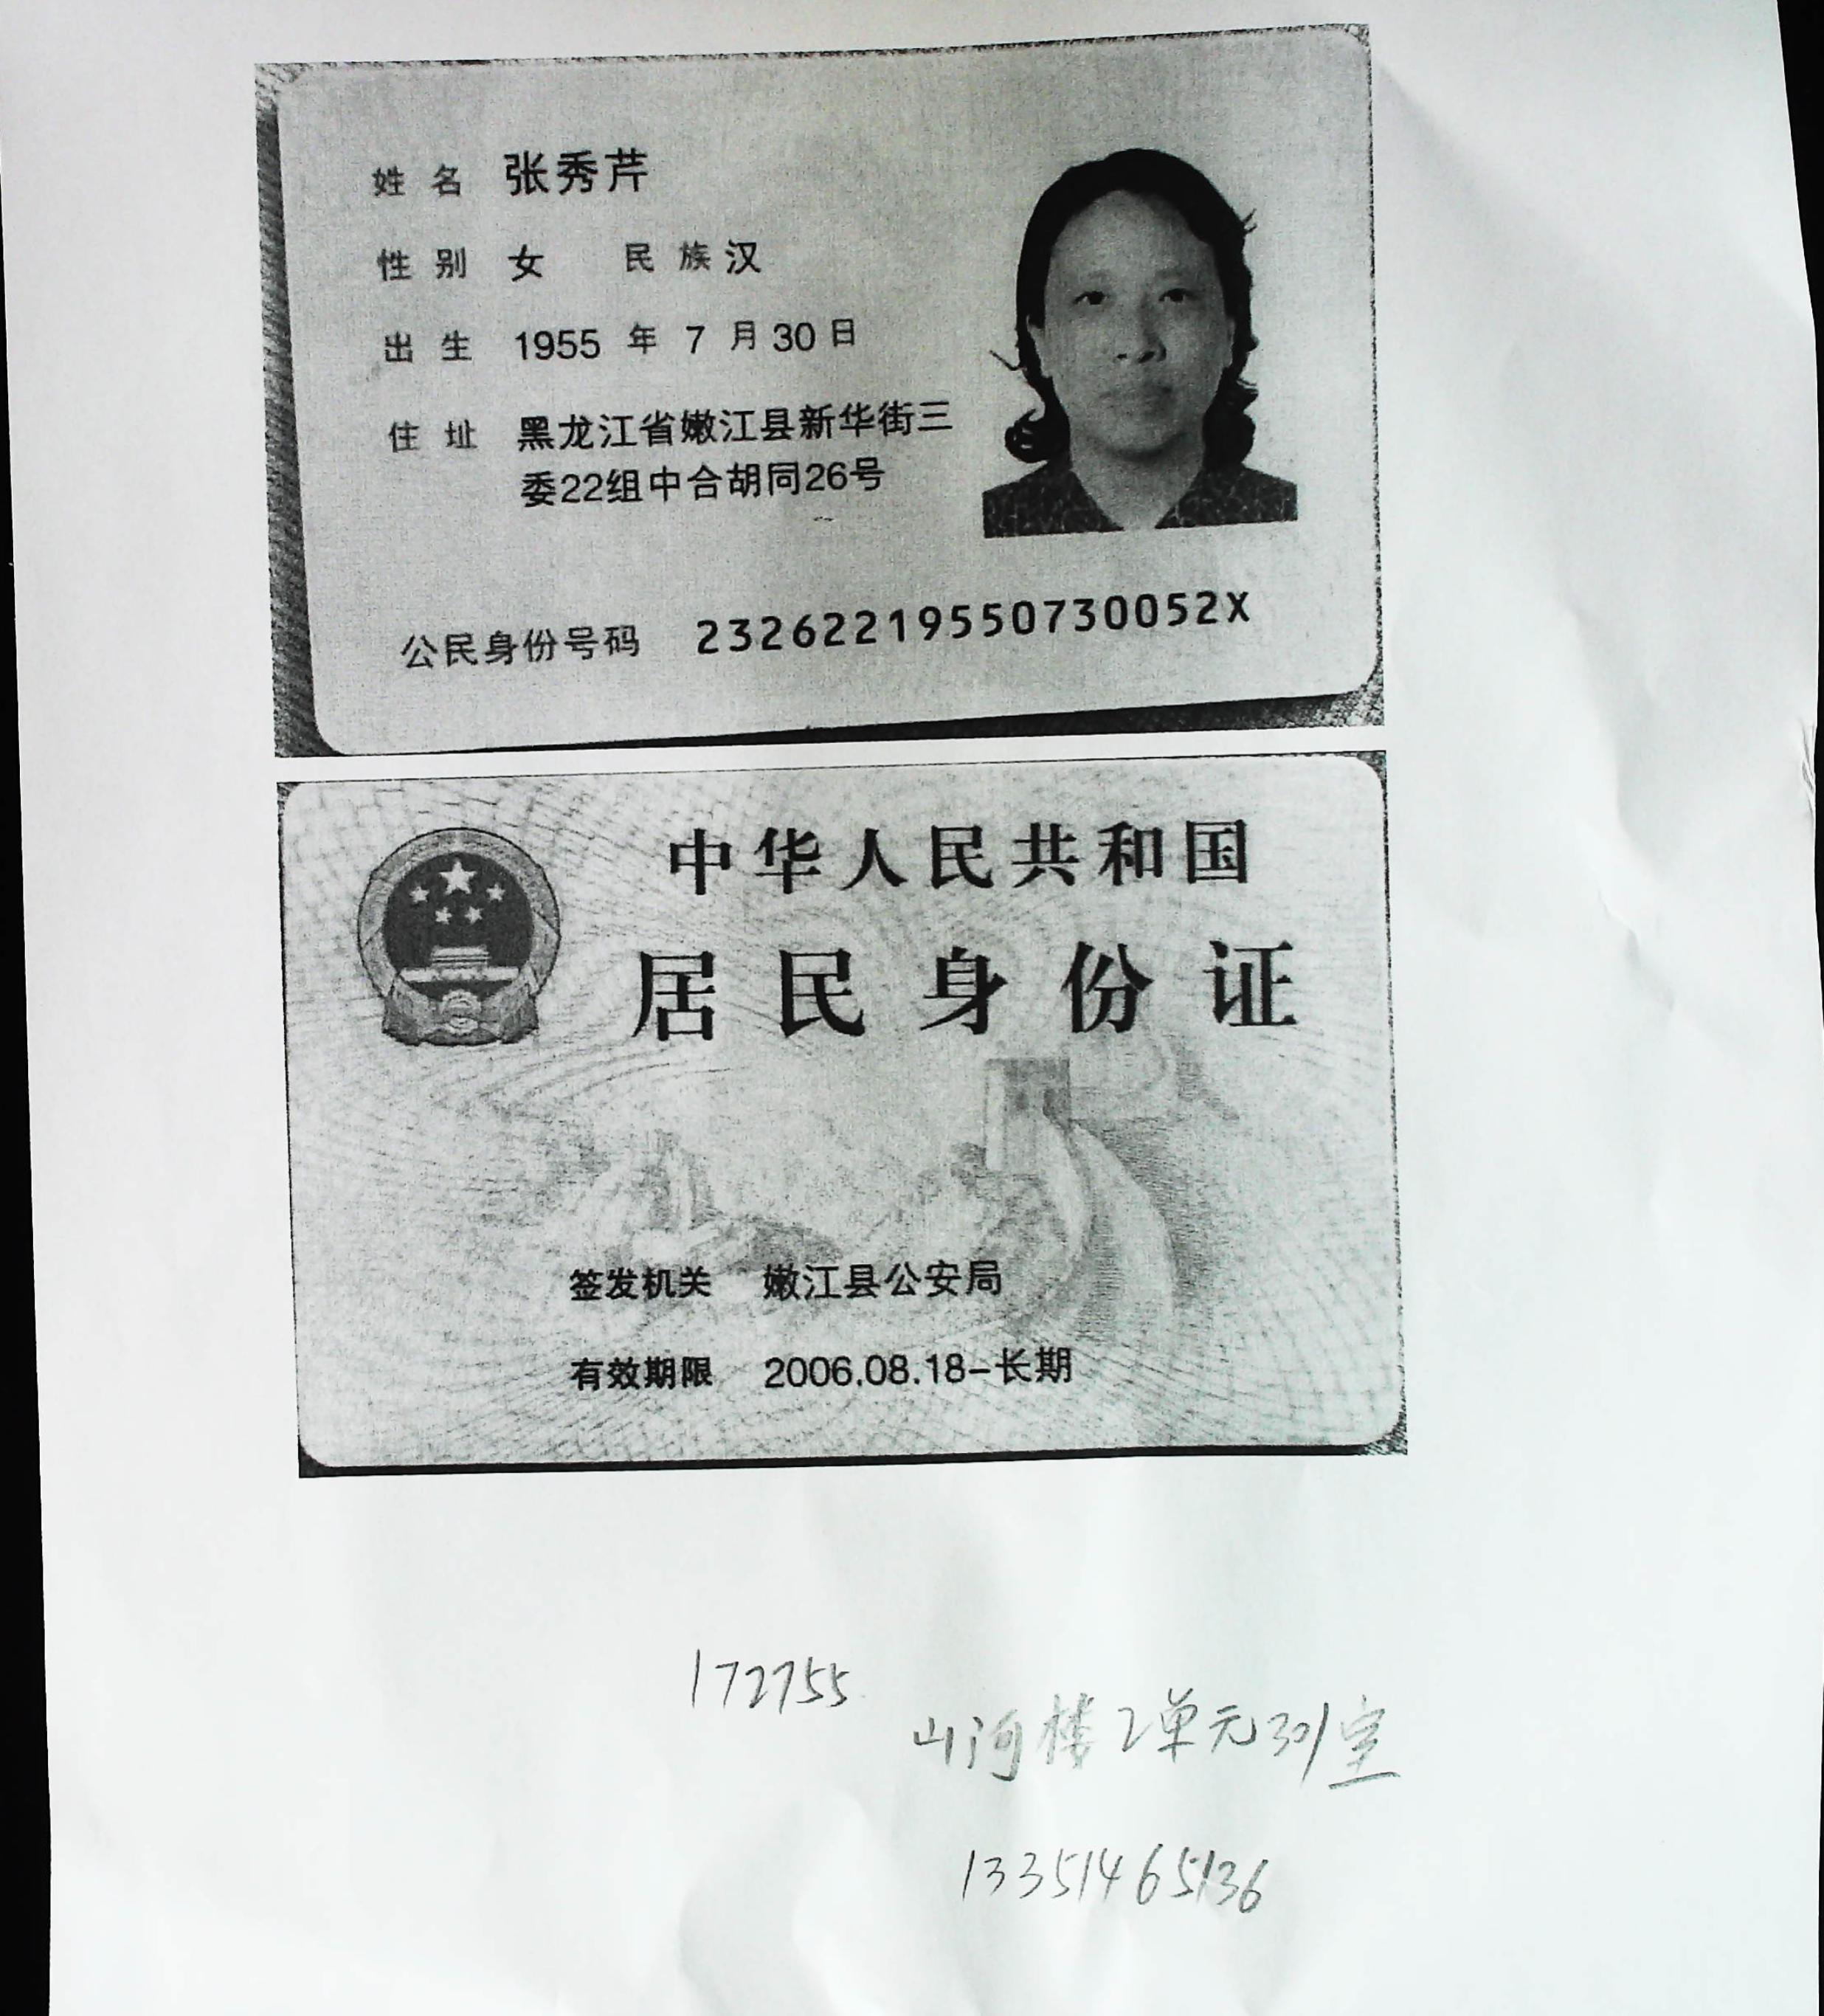 姓名 张秀芹
性别 女 民族 汉
出生 1955 年 7 月 30 日
住址 黑龙江省嫩江县新华街三
委22组中合胡同26号
公民身份号码 23262219550730052X
中华人民共和国
居民身份证
签发机关 嫩江县公安局
有效期限 2006.08.18-长期
172755
山河楼2单元301室
13351465136